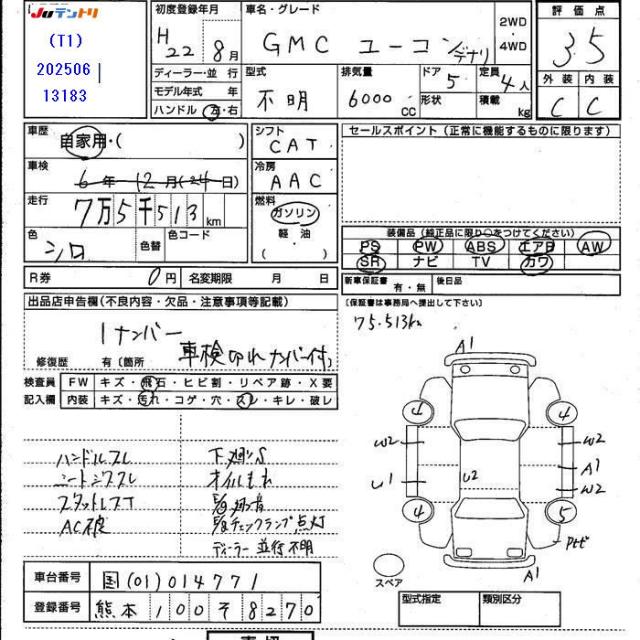 JUテントリ
(T1)
202506
13183
初度登録年月
H22 8月
車名・グレード
GMC ユーコンデナリ
2WD
・
4WD
評価点
3.5
外装 内装
C C
ディーラー・並行
モデル年式 年
ハンドル 左・右
型式
不明
排気量
6000cc
ドア
5
形状
定員
4人
積載
kg
車歴
自家用・( )
車検
6年12月(24日)
走行
7万5千513km
色
シロ
色替
色コード
シフト
CAT
冷房
AAC
燃料
ガソリン
軽・油
( )
セールスポイント(正常に機能するものに限ります)
装備品(純正品に限り○をつけてください)
PS PW ABS エアB AW
SR ナビ TV カワ
R券 0円
名変期限 月 日
新車保証書 有・無
後日品
(保証書は事務局へ提出して下さい)
出品店申告欄(不良内容・欠品・注意事項等記載)
1ナンバー
車検切れナンバー付
修復歴 有(箇所
75.513km
検査員 FW キズ・飛石・ヒビ割・リペア跡・X要
記入欄 内装 キズ・汚れ・コゲ・穴・スレ・キレ・破レ
ハンドルスレ
シートシワスレ
スタットレスT
下廻りS
オイルもれ
E/gチェックランプ点灯
ディーラー並行不明
A1
4
4
W2
W2
U2
A1
W2
U1
4
5
A1
スペア
型式指定 類別区分
車台番号 国(01)014771
登録番号 熊本100そ8270